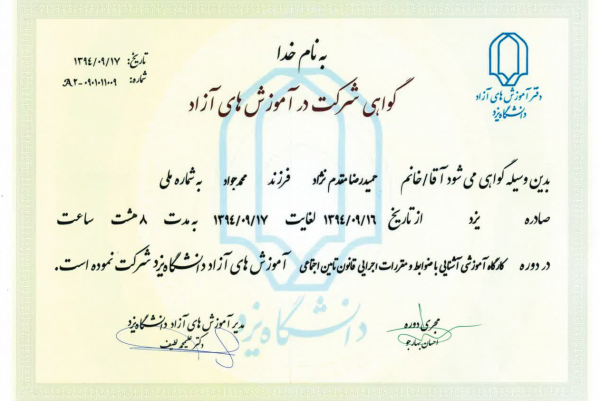 به نام خدا
تاریخ: ۱۳۹٤/۰۹/۱۷
شماره: ۹۰۱۰۱۱۰۰۹-A۲
دفتر آموزش های آزاد
دانشگاه یزد
گواهی شرکت در آموزش های آزاد
بدین وسیله گواهی می شود آقا/خانم حمیدرضا مقدم نژاد فرزند محمدجواد به شماره ملی
صادره یزد از تاریخ ۱۳۹٤/۰۹/۱۶ لغایت ۱۳۹٤/۰۹/۱۷ به مدت ۸ هشت ساعت
در دوره کارگاه آموزشی آشنایی با ضوابط و مقررات اجرایی قانون تامین اجتماعی آموزش های آزاد دانشگاه یزد شرکت نموده است.
دانشگاه یزد
مجری دوره
مدیر آموزش های آزاد دانشگاه یزد
احسان
دکتر